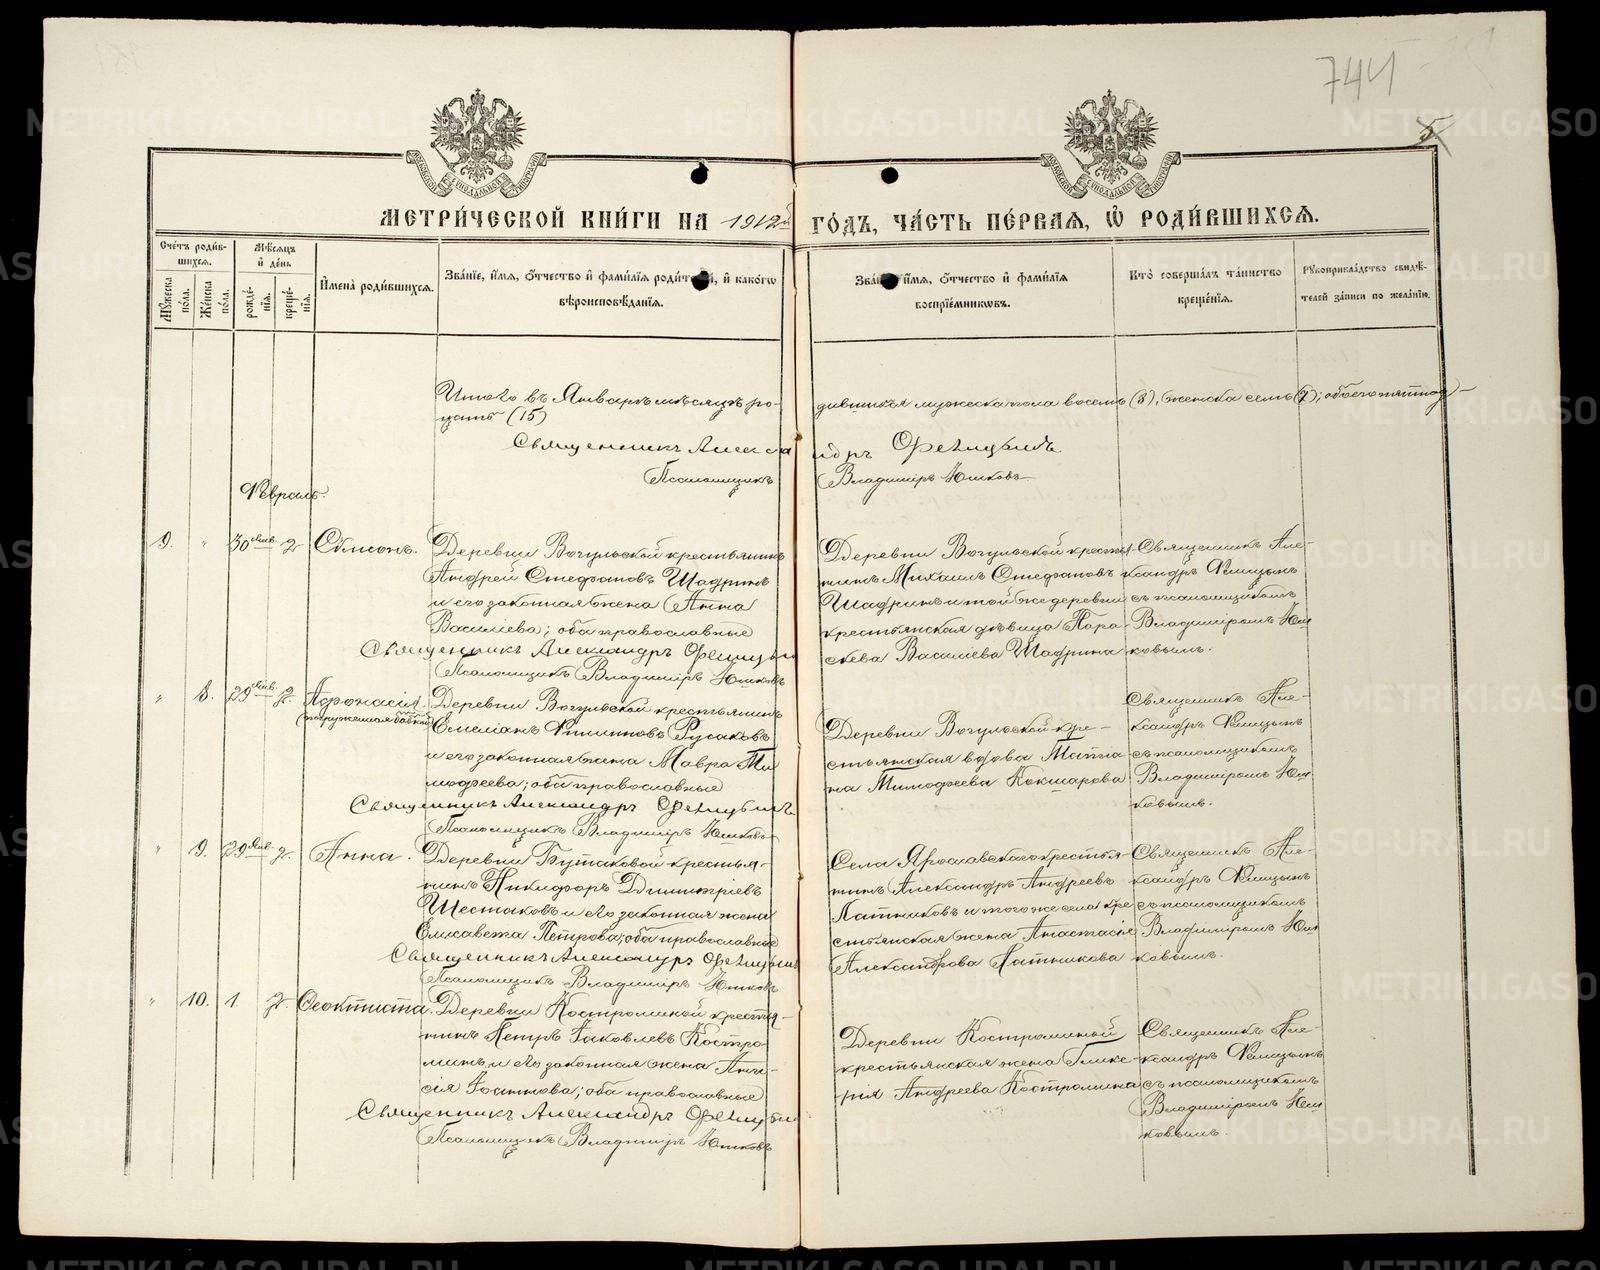 744
5
МЕТРИ́ЧЕСКОЙ КНИ́ГИ НА 1912й ГО́ДЪ, ЧА́СТЬ ПЕ́РВАЯ, Ѡ҆ РОДИ́ВШИХСЯ.
Сче́тъ роди́в-
шихся.
Мꙋ́жеска по́ла.
Же́нска по́ла.
Мѣ́сяцъ и҆ де́нь
рожде́-
нїя.
креще́-
нїя.
И҆мена̀ роди́вшихся.
Зва́нїе, и҆́мя, ѻ҆́тчество и҆ фамı́лїя роди́телей, и҆ како́гѡ
вѣроисповѣ́данїя.
Зва́нїе, и҆́мя, ѻ҆́тчество и҆ фамı́лїя
воспрїе́мникѡвъ.
Кто̀ соверша́лъ та́инство
креще́нїя.
Рꙋкоприкла́дство свидѣ́-
телей за́писи по жела́нїю.
Итого въ Январѣ мѣсяцѣ ро- дившихся мужеска пола восемь (8), женска семь (7); обоего пятнад-
цать (15)
Священникъ Александръ Фелицынъ
Псаломщикъ Владиміръ Юшковъ
Февраль.
9. " 30 янв. 2 Сѵмеонъ.
Деревни Вогульской крестьянинъ
Андрей Стефановъ Шадринъ
и его законная жена Анна
Василіева; оба православные
Священникъ Александръ Фелицынъ
Псаломщикъ Владиміръ Юшковъ
Деревни Вогульской крестья-
нинъ Михаилъ Стефановъ
Шадринъ и той же деревни
крестьянская дѣвица Пара-
скева Василіева Шадрина
Священникъ Але-
ксандръ Фелицынъ
съ псаломщикомъ
Владиміромъ Юш
ковымъ.
" 8. 29 янв. 2. Аѳонасія.
(погруженная бабкой)
Деревни Вогульской крестьянинъ
Емеліанъ Филипповъ Русаковъ
и его законная жена Мавра Ти
моѳеева; оба православные
Священникъ Александръ Фелицынъ
Псаломщикъ Владиміръ Юшковъ
Деревни Вогульской кре-
стьянская вдова Татіа
на Тимоѳеева Кокшарова
Священникъ Але-
ксандръ Фелицынъ
съ псаломщикомъ
Владиміромъ Юш
ковымъ.
" 9. 29 янв. 2. Анна.
Деревни Бутаковой крестья-
нинъ Никифоръ Димитріевъ
Шестаковъ и его законная жена
Елисавета Петрова; оба православные
Священникъ Александръ Фелицынъ
Псаломщикъ Владиміръ Юшковъ
Села Ярославскаго крестья-
нинъ Александръ Андреевъ
Латниковъ и того же села кре
стьянская жена Анастасія
Александрова Латникова
Священникъ Але-
ксандръ Фелицынъ
съ псаломщикомъ
Владиміромъ Юш
ковымъ.
" 10. 1 2. Ѳеоктиста.
Деревни Костроминой крестья-
нинъ Петръ Іаковлевъ Костро-
минъ и его законная жена Ани-
сія Іоаннова; оба православные
Священникъ Александръ Фелицынъ
Псаломщикъ Владиміръ Юшковъ
Деревни Костроминой
крестьянская жена Глике-
рія Андреева Костромина
Священникъ Але-
ксандръ Фелицынъ
съ псаломщикомъ
Владиміромъ Юш
ковымъ.
METRIKI.GASO-URAL.RU